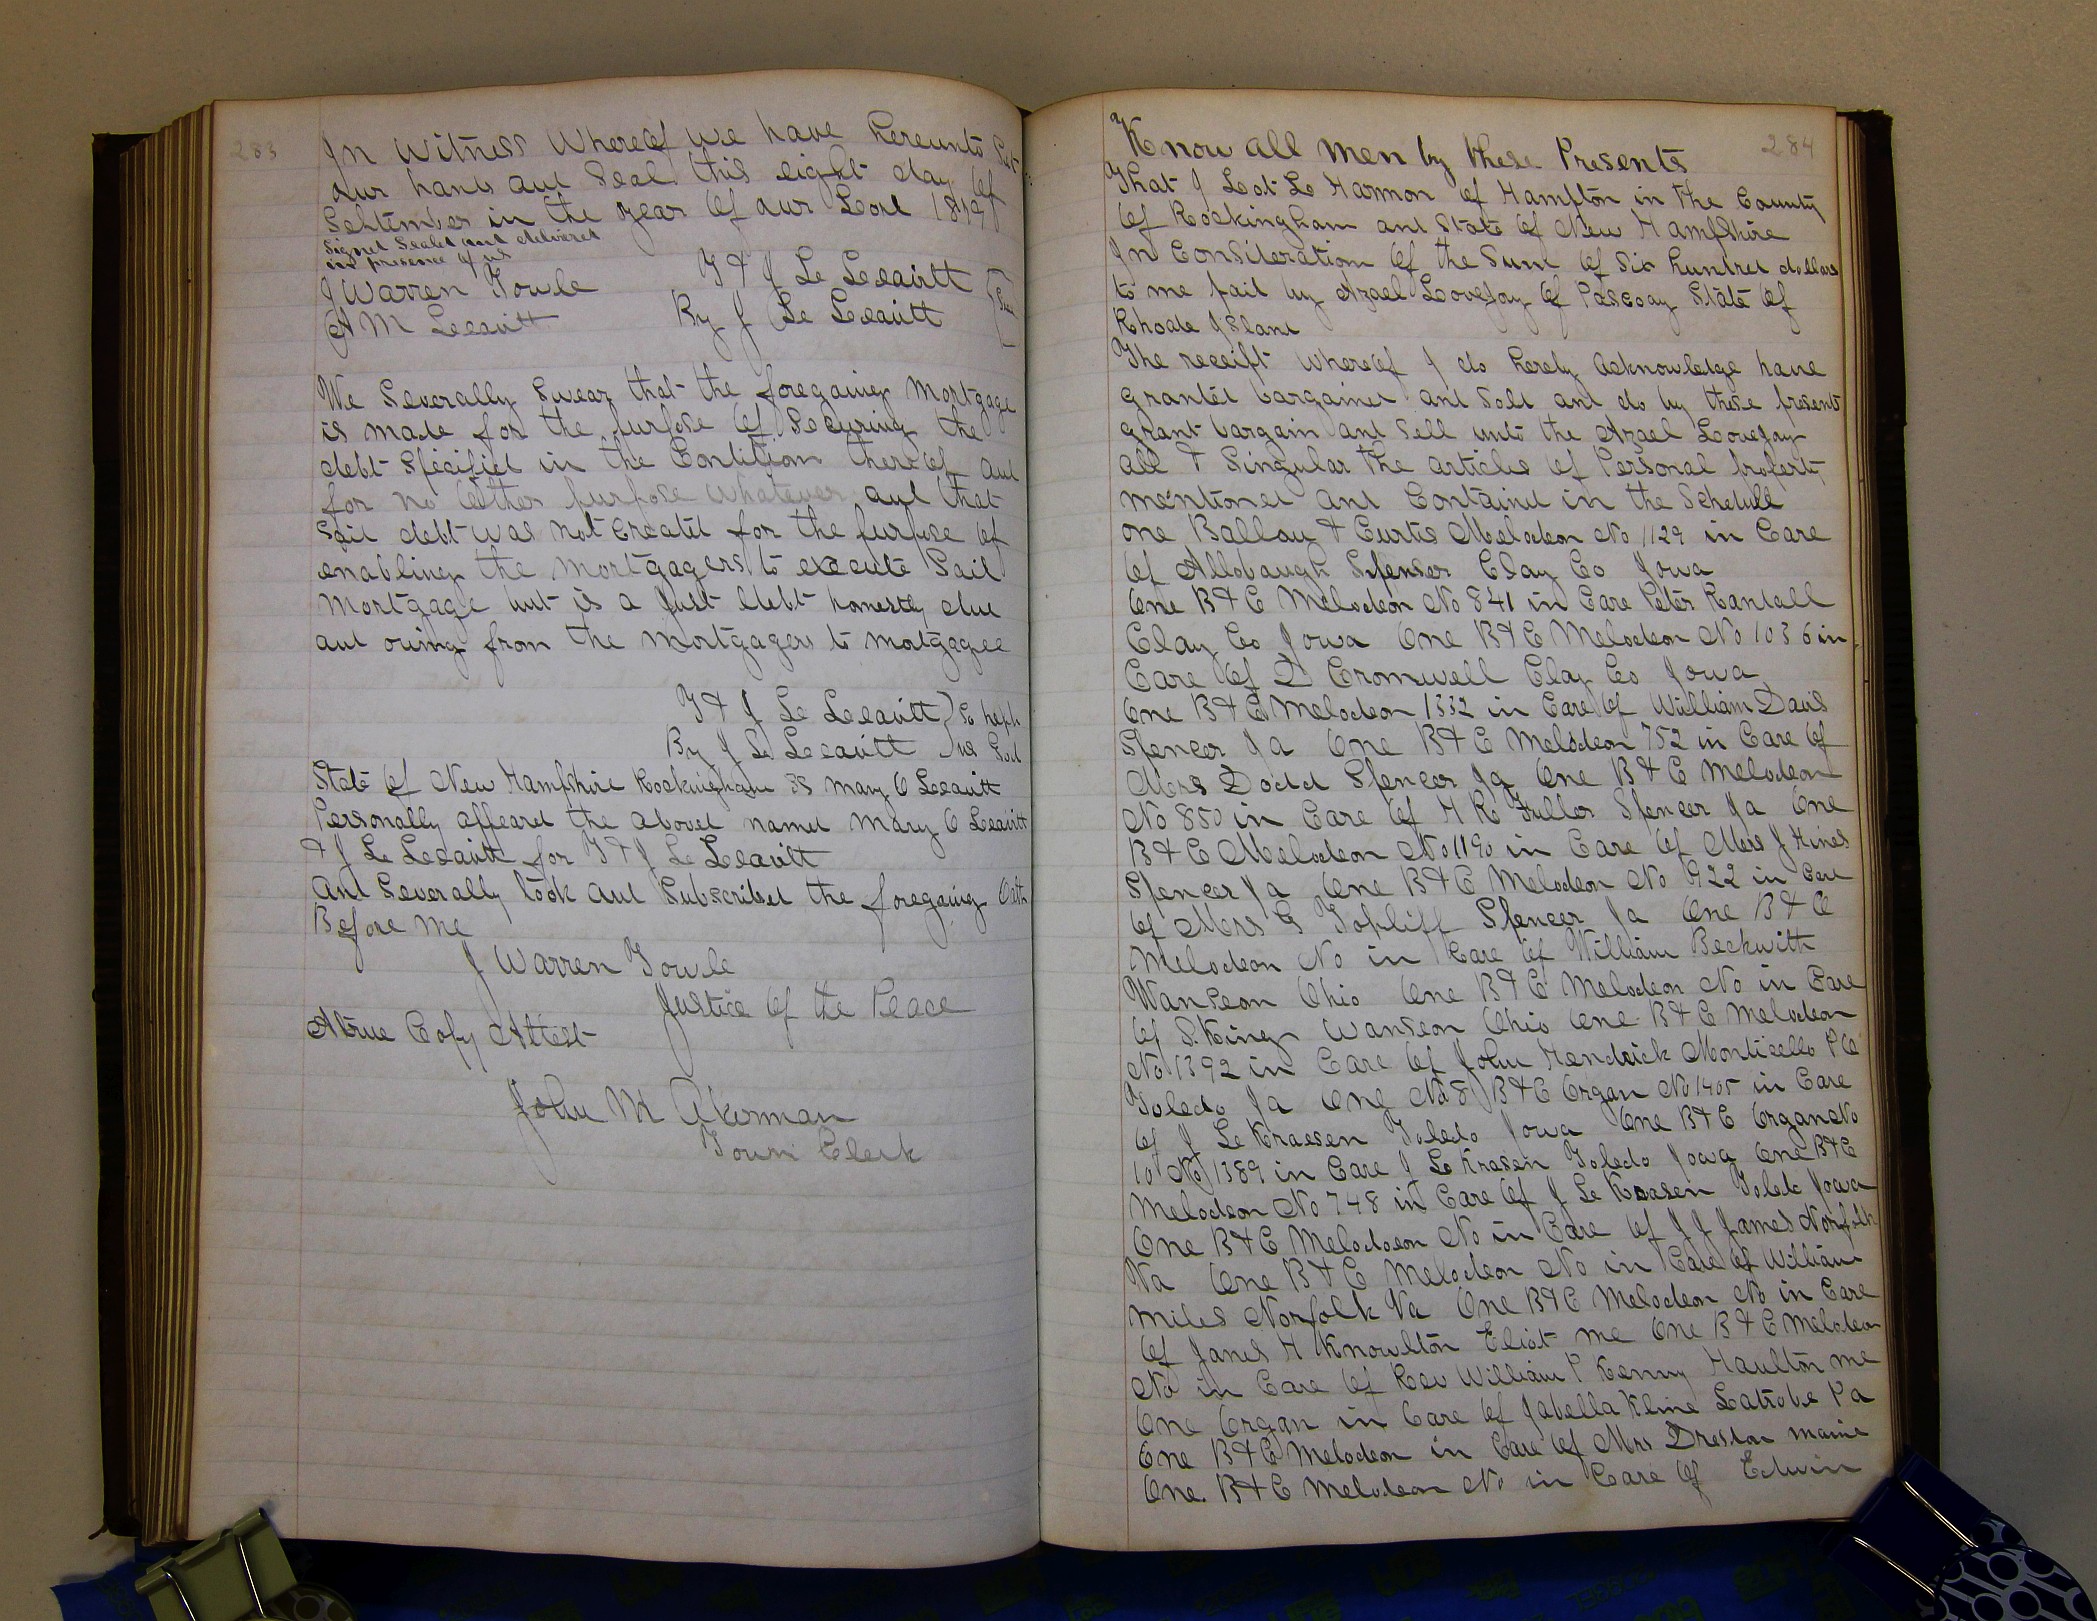 283
In Witness Whereof we have hereunto Set
our hands and Seal this eight day of
September in the year of our Lord 1879
Signed Sealed and delivered
in presence of us
J Warren Towle
T & J L Leavitt
A M Leavitt
By J L Leavitt
Seal
We Severally Swear that the foregoing Mortgage
is made for the purpose of Securing the
debt Specified in the Condition thereof and
for no Other purpose whatever and that
Said debt was not Created for the purpose of
enabling the Mortgagers to execute Said
Mortgage but is a Just debt honestly due
and owing from the mortgagers to mortgagee
T & J L Leavitt } So help
By J L Leavitt } us God
State of New Hampshire Rockingham SS Mary O Leavitt
Personally appeard the above named Mary O Leavitt
& J L Leavitt for T & J L Leavitt
And Severally took and Subscribed the foregoing Oath
Before Me
J Warren Towle
Justice of the Peace
A true Copy Attest
John M Akerman
Town Clerk
284
Know all men by these Presents
That I Lot L Harmon of Hampton in the County
of Rockingham and State of New Hampshire
In Consideration of the Sum of Six hundred dollars
to me paid by Azael Lovejoy of Pascoag State of
Rhode Island
The receipt whereof I do hereby acknowledge have
granted bargained and Sold and do by these presents
grant bargain and Sell unto the Azael Lovejoy
all & Singular the articles of Personal property
mentioned and Containd in the Schedull
one Ballou & Curtis Melodeon No 1129 in Care
of Allobaugh Spenser Clay Co Iowa
One B & C Melodeon No 841 in Care Peter Randall
Clay Co Iowa One B & C Melodeon No 1036 in
Care of D Cromwell Clay Co Iowa
One B & C Melodeon 1332 in Care of William Davis
Spencer Ia One B & C Melodeon 752 in Care of
Mrs Dodd Spencer Ia One B & C Melodeon
No 850 in Care of H R Fuller Spencer Ia One
B & C Melodeon No 1190 in Care of Mrs J Hines
Spencer Ia One B & C Melodeon No 922 in Care
of Mrs G Topliff Spencer Ia One B & C
Melodeon No in Care of William Beckwith
Wanseon Ohio One B & C Melodeon No in Care
of S. King Wanseon Ohio One B & C Melodeon
No 1392 in Care of John Hendrick Monticello P O
Toledo Ia One No 8 B & C Organ No 1405 in Care
of J L Kraesen Toledo Iowa One B & C Organ No
10 No 1389 in Care J L Krasen Toledo Iowa One B & C
Melodeon No 748 in Care of J L Krasen Toledo Iowa
One B & C Melodoeon No in Care of J J James Norfolk
Va One B & C Melodeon No in Care of William
Miles Norfolk Va One B & C Melodeon No in Care
of James H Knowlton Eliot me One B & C Melodeon
No in Care of Rev William P Kenny Haulton me
One Organ in Care of Isabella Kline Latrobe Pa
One B & C Melodeon in Care of Mrs Dreston maine
One B & C Melodeon No in Care of Edwin